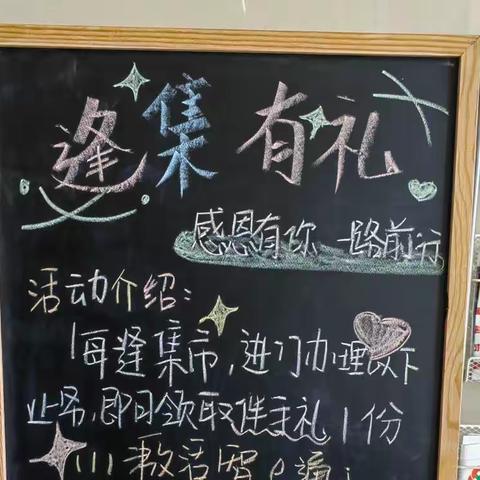 逢集有礼
感恩有你 一路前行
活动介绍:
1每逢集市,进门办理以下
业务,即日领取伴手礼1份